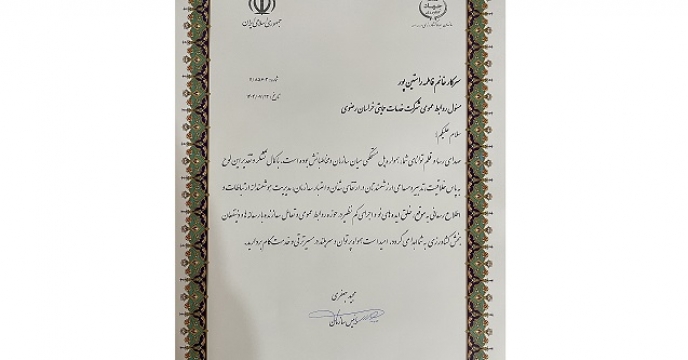 جمهوری اسلامی ایران
جهاد
سرکار خانم فاطمه راستین پور
مسئول روابط عمومی شرکت خدمات حمایتی خراسان رضوی
سلام علیکم؛
صدای رسا و قلم توانای شما، همواره پل مستحکمی میان سازمان و مخاطبانش بوده است. با کمال تشکر و تقدیر این لوح
به پاس خلاقیت، تدبیر و مساعی ارزشمندتان در ارتقای شأن و اعتبار سازمان، مدیریت هوشمندانه ارتباطات و
اطلاع رسانی به موقع، خلق ایده‌های نو و اجرای کم نظیر در حوزه روابط عمومی و تعامل سازنده با رسانه‌ها و ذینفعان
بخش کشاورزی به شما اهدا می گردد. امید است همواره پرتوان و سربلند در مسیر ترقی و خدمت گام بردارید.
مجید جعفری
رئیس سازمان